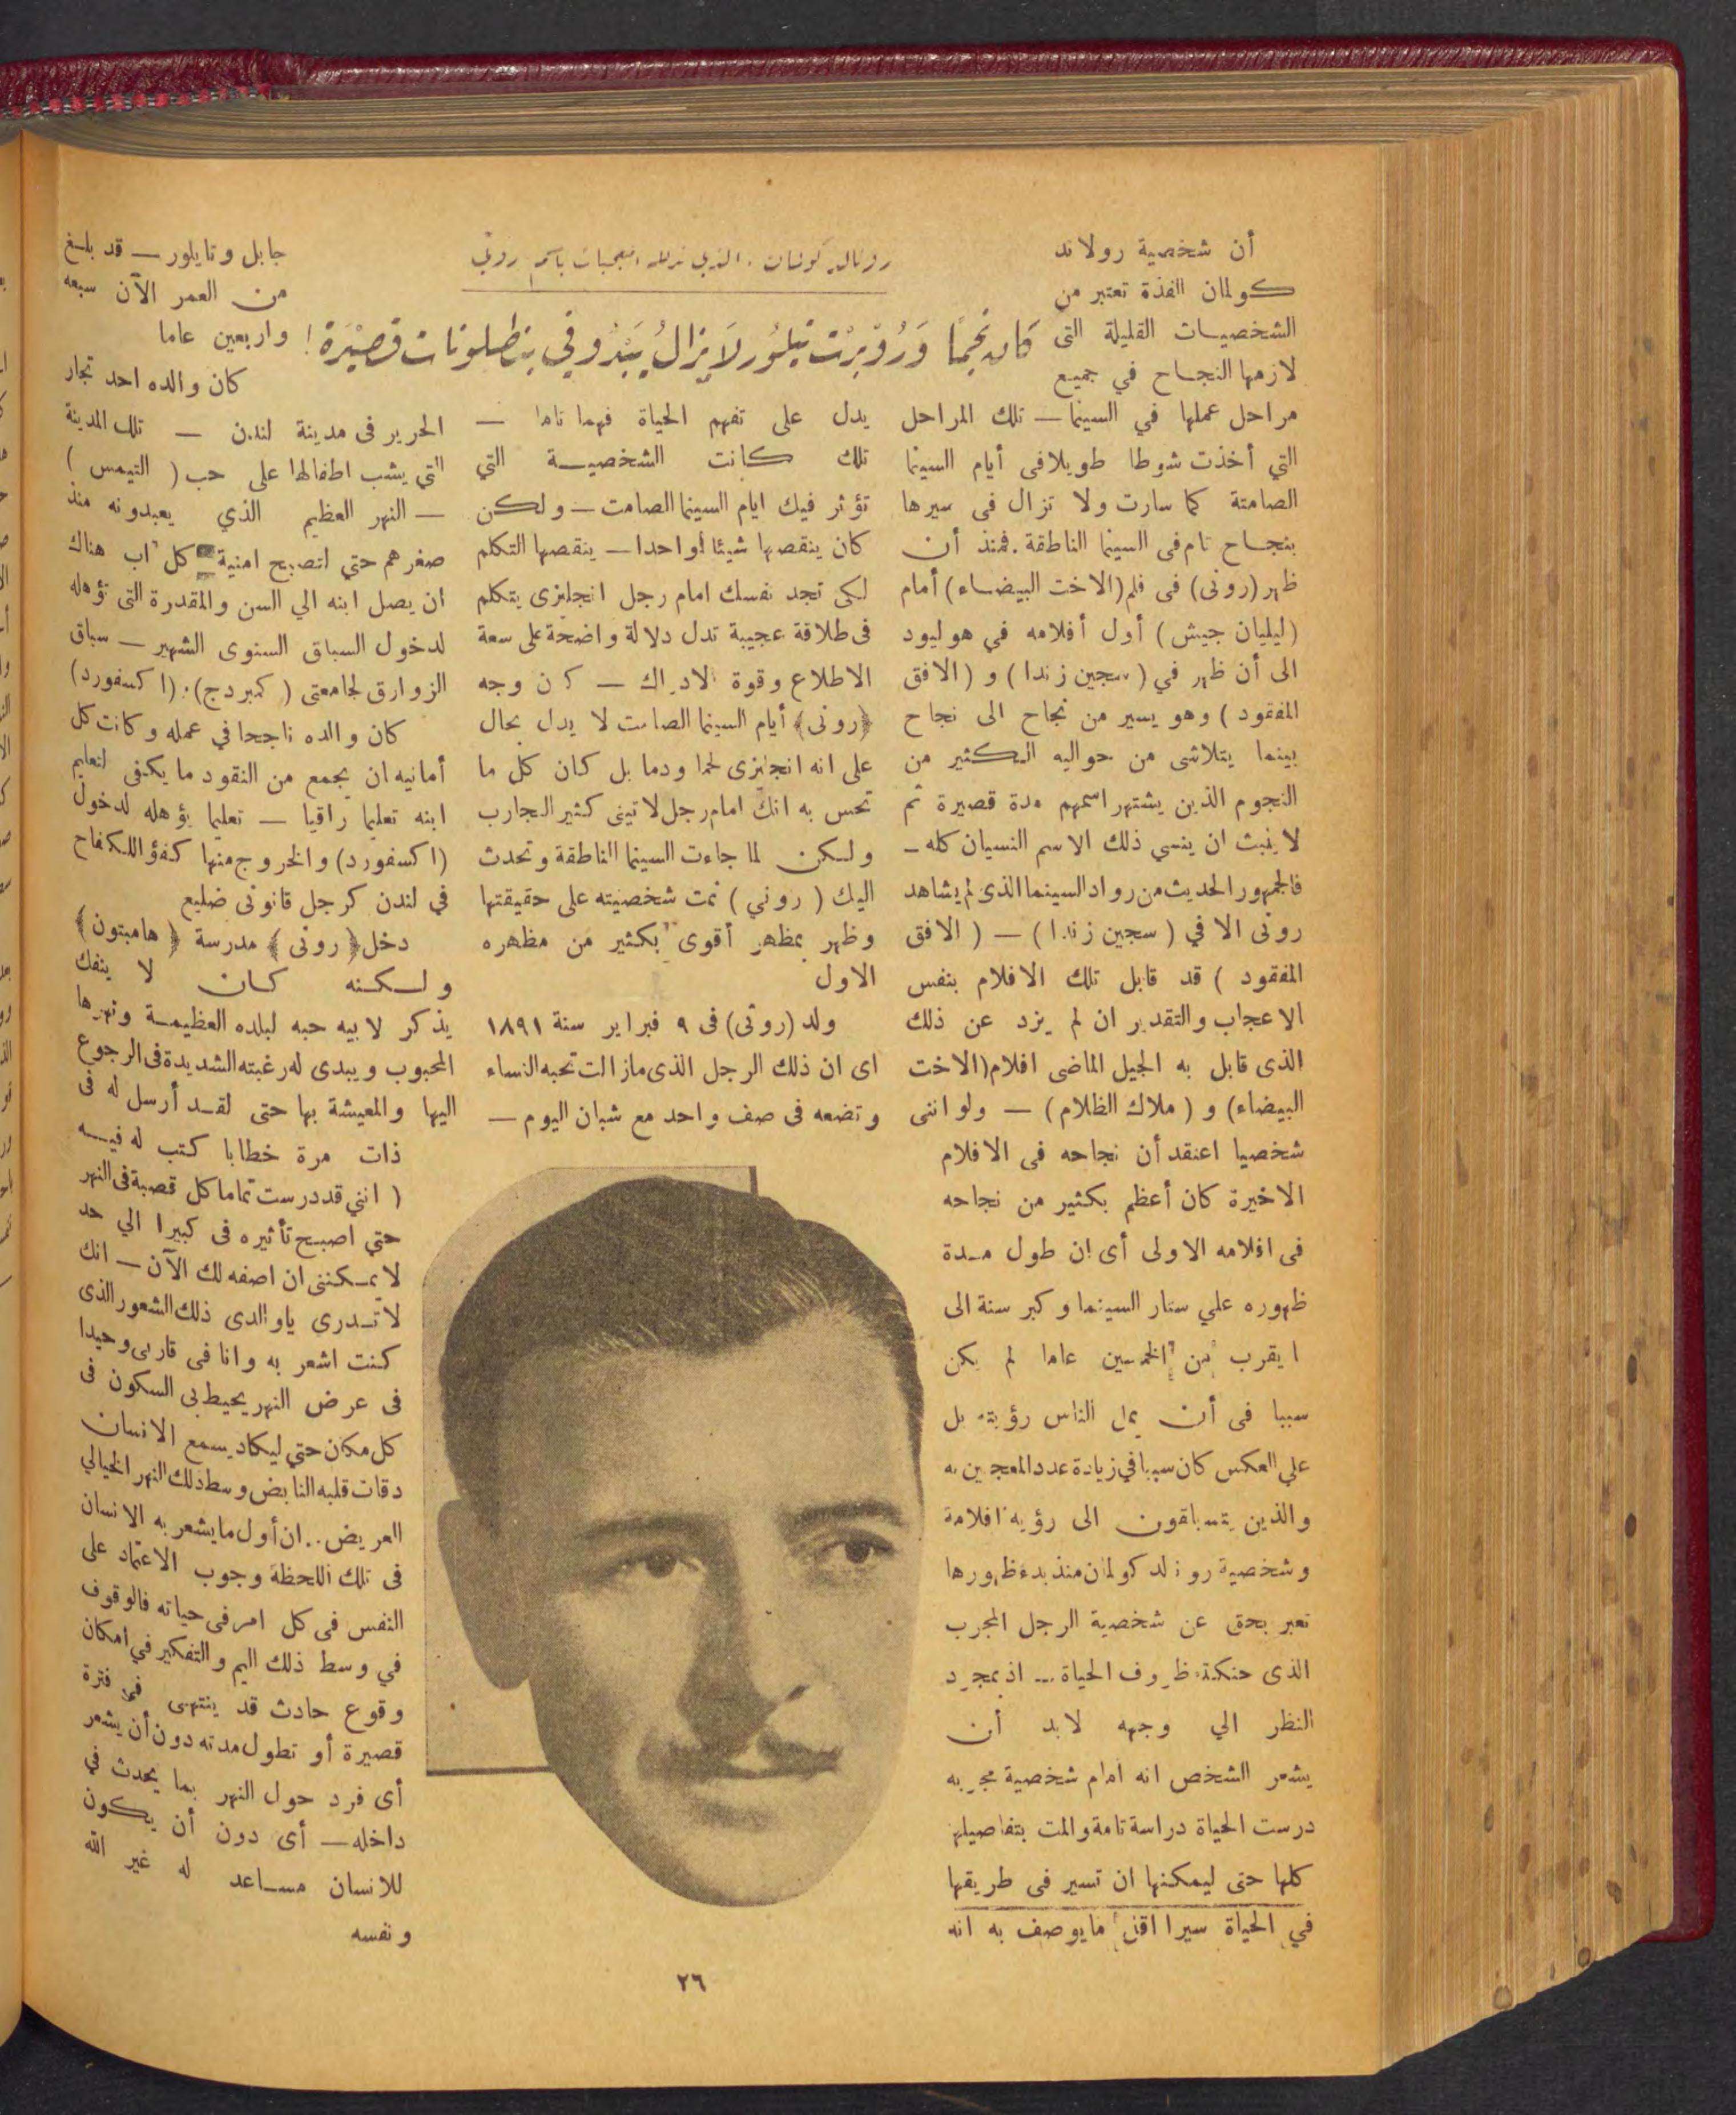 رونالد كولمان . الذي تدلله المعجبات باسم روني
كان نجمًا وَرُوبرْت تيلُور لَا يزالُ يَبْدُو في بنطلونات قصيْرَة !
أن شخصية رولاند
كولمان الفذة تعتبر من
الشخصيات القليلة التى
لازمها النجاح في جميع
مراحل عملها في السينما — تلك المراحل
التي أخذت شوطا طويلا فى أيام السينما
الصامتة كما سارت ولا تزال فى سيرها
بنجاح تام فى السينما الناطقة . فمنذ أن
ظهر (رونى) فى فلم (الاخت البيضاء) أمام
(ليليان جيش) أول أفلامه في هوليود
الى أن ظهر في (سجين زندا) و (الافق
المفقود) وهو يسير من نجاح الى نجاح
بينما يتلاشى من حواليه الكثير من
النجوم الذين يشتهر اسمهم مدة قصيرة ثم
لا يلبث ان ينسي ذلك الاسم النسيان كله —
فالجمهور الحديث من رواد السينما الذى لم يشاهد
رونى الا في (سجين زندا) — (الافق
المفقود) قد قابل تلك الافلام بنفس
الاعجاب والتقدير ان لم يزد عن ذلك
الذى قابل به الجيل الماضى افلام (الاخت
البيضاء) و (ملاك الظلام) — ولو اننى
شخصيا اعتقد أن نجاحه فى الافلام
الاخيرة كان أعظم بكثير من نجاحه
فى افلامه الاولى أى ان طول مدة
ظهوره علي ستار السينما وكبر سنة الى
ا يقرب من الخمسين عاما لم يكن
سببا فى أن يمل الناس رؤيته بل
علي العكس كان سببا في زيادة عدد المعجبين به
والذين يتسابقون الى رؤية افلامة
وشخصية رونلد كولمان منذ بدء ظهورها
تعبر بحق عن شخصية الرجل المجرب
الذى حنكته ظروف الحياة ... اذ بمجرد
النظر الي وجهه لابد أن
يشعر الشخص انه امام شخصية مجربه
درست الحياة دراسة تامة والمت بتفاصيلها
كلها حتى ليمكنها ان تسير فى طريقها
في الحياة سيرا اقل ما يوصف به انه
يدل على تفهم الحياة فهما تاما —
تلك كانت الشخصية التي
تؤثر فيك ايام السينما الصامت — ولكن
كان ينقصها شيئا واحدا — ينقصها التكلم
لكى تجد نفسك امام رجل انجليزى يتكلم
فى طلاقة عجيبة تدل دلالة واضحة على سعة
الاطلاع وقوة الادراك — كان وجه
(رونى) أيام السينما الصامت لا يدل بحال
على انه انجليزى لحما ودما بل كان كل ما
تحس به انك امام رجل لاتينى كثير التجارب
ولكن لما جاءت السينما الناطقة وتحدث
اليك (روني) نمت شخصيته على حقيقتها
وظهر بمظهر أقوى بكثير من مظهره
الاول
ولد (رونى) فى ٩ فبراير سنة ١٨٩١
اى ان ذلك الرجل الذى مازالت تحبه النساء
وتضعه فى صف واحد مع شبان اليوم —
جابل وتايلور — قد بلغ
من العمر الآن سبعه
واربعين عاما
كان والده احد تجار
الحرير فى مدينة لندن — تلك المدينة
التي يشب اطفالها على حب (التيمس)
— النهر العظيم الذي يعبدونه منذ
صغرهم حتي لتصبح امنية كل اب هناك
ان يصل ابنه الي السن والمقدرة التى تؤهله
لدخول السباق السنوى الشهير — سباق
الزوارق لجامعتى (كمبردج) : (اكسفورد)
كان والده ناجحا في عمله وكانت كل
أمانيه ان يجمع من النقود ما يكفى لتعليم
ابنه تعليما راقيا — تعليما يؤهله لدخول
(اكسفورد) والخروج منها كفؤا للكفاح
في لندن كرجل قانونى ضليع
دخل (رونى) مدرسة (هامبتون)
ولكنه كان لا ينفك
يذكر لابيه حبه لبلده العظيمة ونهرها
المحبوب ويبدى له رغبته الشديدة فى الرجوع
اليها والمعيشة بها حتى لقد أرسل له فى
ذات مرة خطابا كتب له فيه
( اننى قد درست تماما كل قصبة فى النهر
حتي اصبح تأثيره فى كبيرا الي حد
لا يمكننى ان اصفه لك الآن — انك
لا تدري ياوالدى ذلك الشعور الذى
كنت اشعر به وانا فى قاربى وحيدا
فى عرض النهر يحيط بى السكون فى
كل مكان حتي ليكاد يسمع الانسان
دقات قلبه النابض وسط ذلك النهر الخيالي
العريض .. ان أول ما يشعر به الانسان
فى تلك اللحظة وجوب الاعتماد على
النفس فى كل امر فى حياته فالوقوف
في وسط ذلك اليم والتفكير في امكان
وقوع حادث قد ينتهى فى فترة
قصيرة أو تطول مدته دون أن يشعر
أى فرد حول النهر بما يحدث في
داخله — أى دون أن يكون
للانسان مساعد له غير الله
ونفسه
٢٦